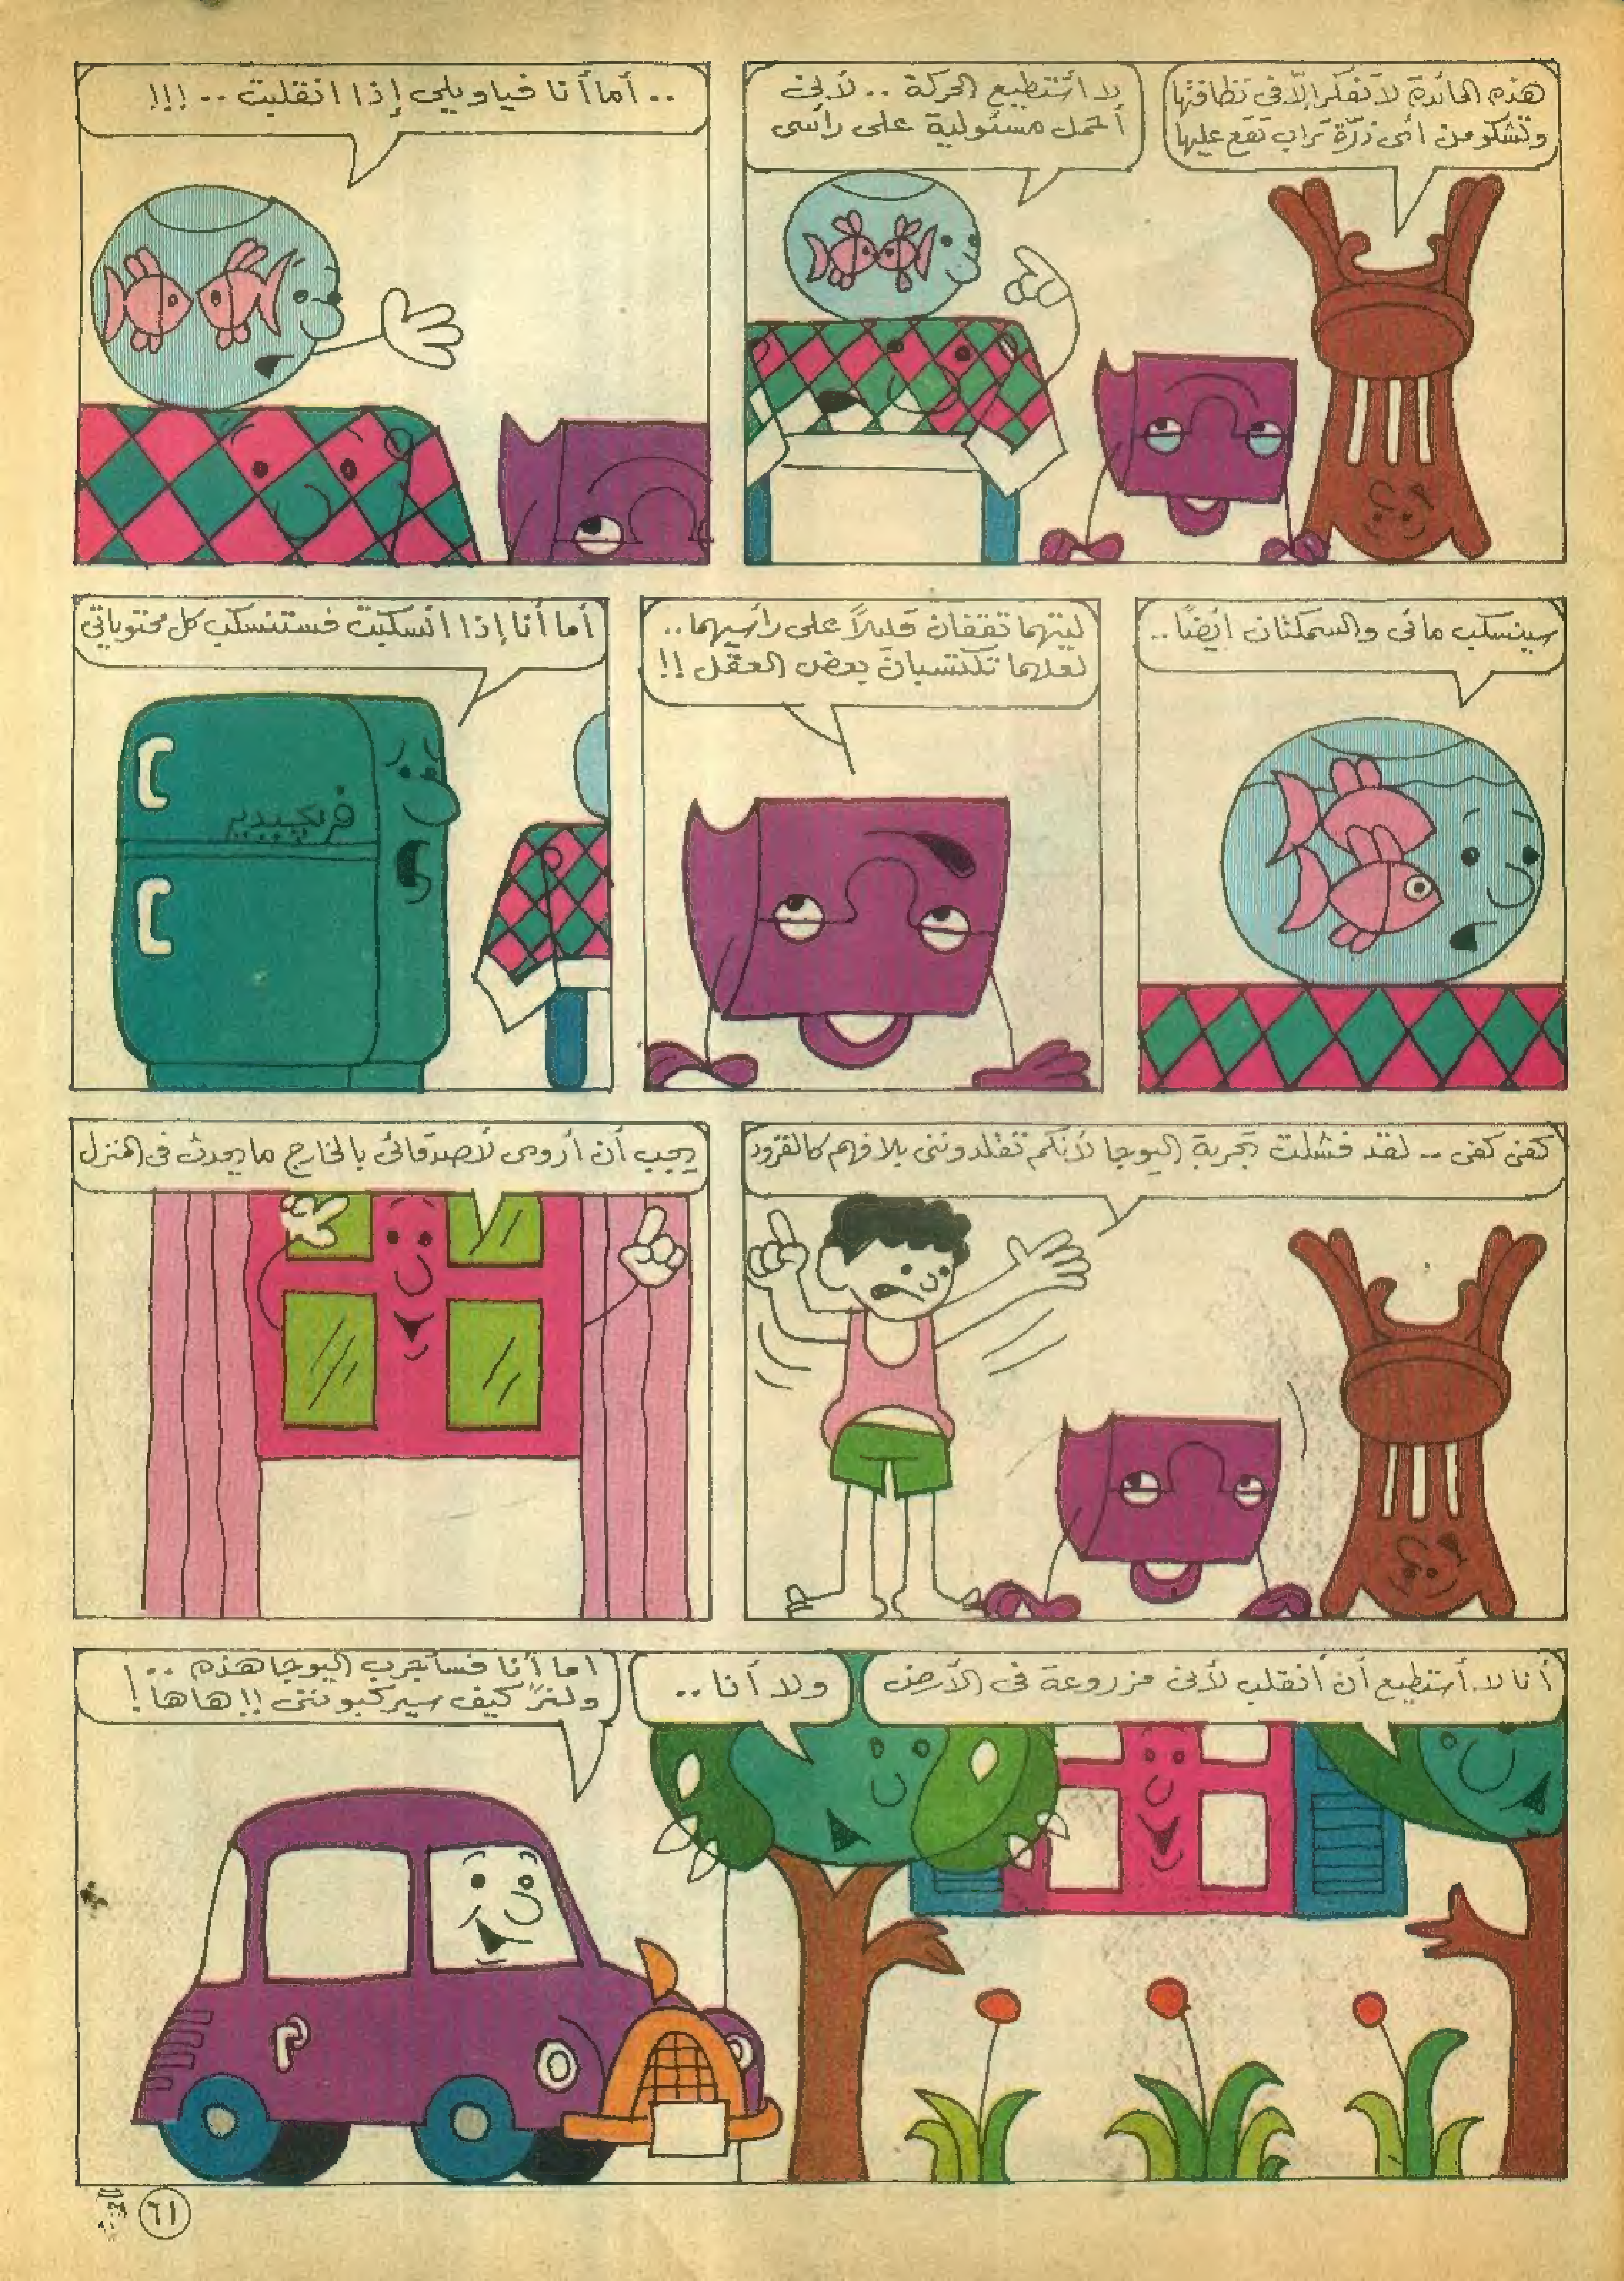 هذه المائدة لا تفكر إلّا فى نظافتها
وتشكو من أى ذرّة تراب تقع عليها
لا أستطيع الحركة .. لأنى
أحمل مسئولية على رأسى
.. أما أنا فياويلى إذا انقلبت .. !!!
سينسكب مائى والسمكتان أيضًا ..
ليتهما تقفان قليلاً على رأسيهما ..
لعلهما تكتسبان بعض العقل !!
أما أنا إذا انسكبت فستنسكب كل محتوياتى
فريجيدير
كفى كفى .. لقد فشلت تجربة اليوجا لأنكم تقلدوننى بلا فهم كالقرود
يجب أن أروى لأصدقائى بالخارج ما يحدث فى المنزل
أنا لا أستطيع أن أنقلب لأنى مزروعة فى الأرض
ولا أنا ..
اما أنا فسأجرب اليوجا هذه .. !
ولنرَ كيف سيركبوننى !! هاها !
P
٦١